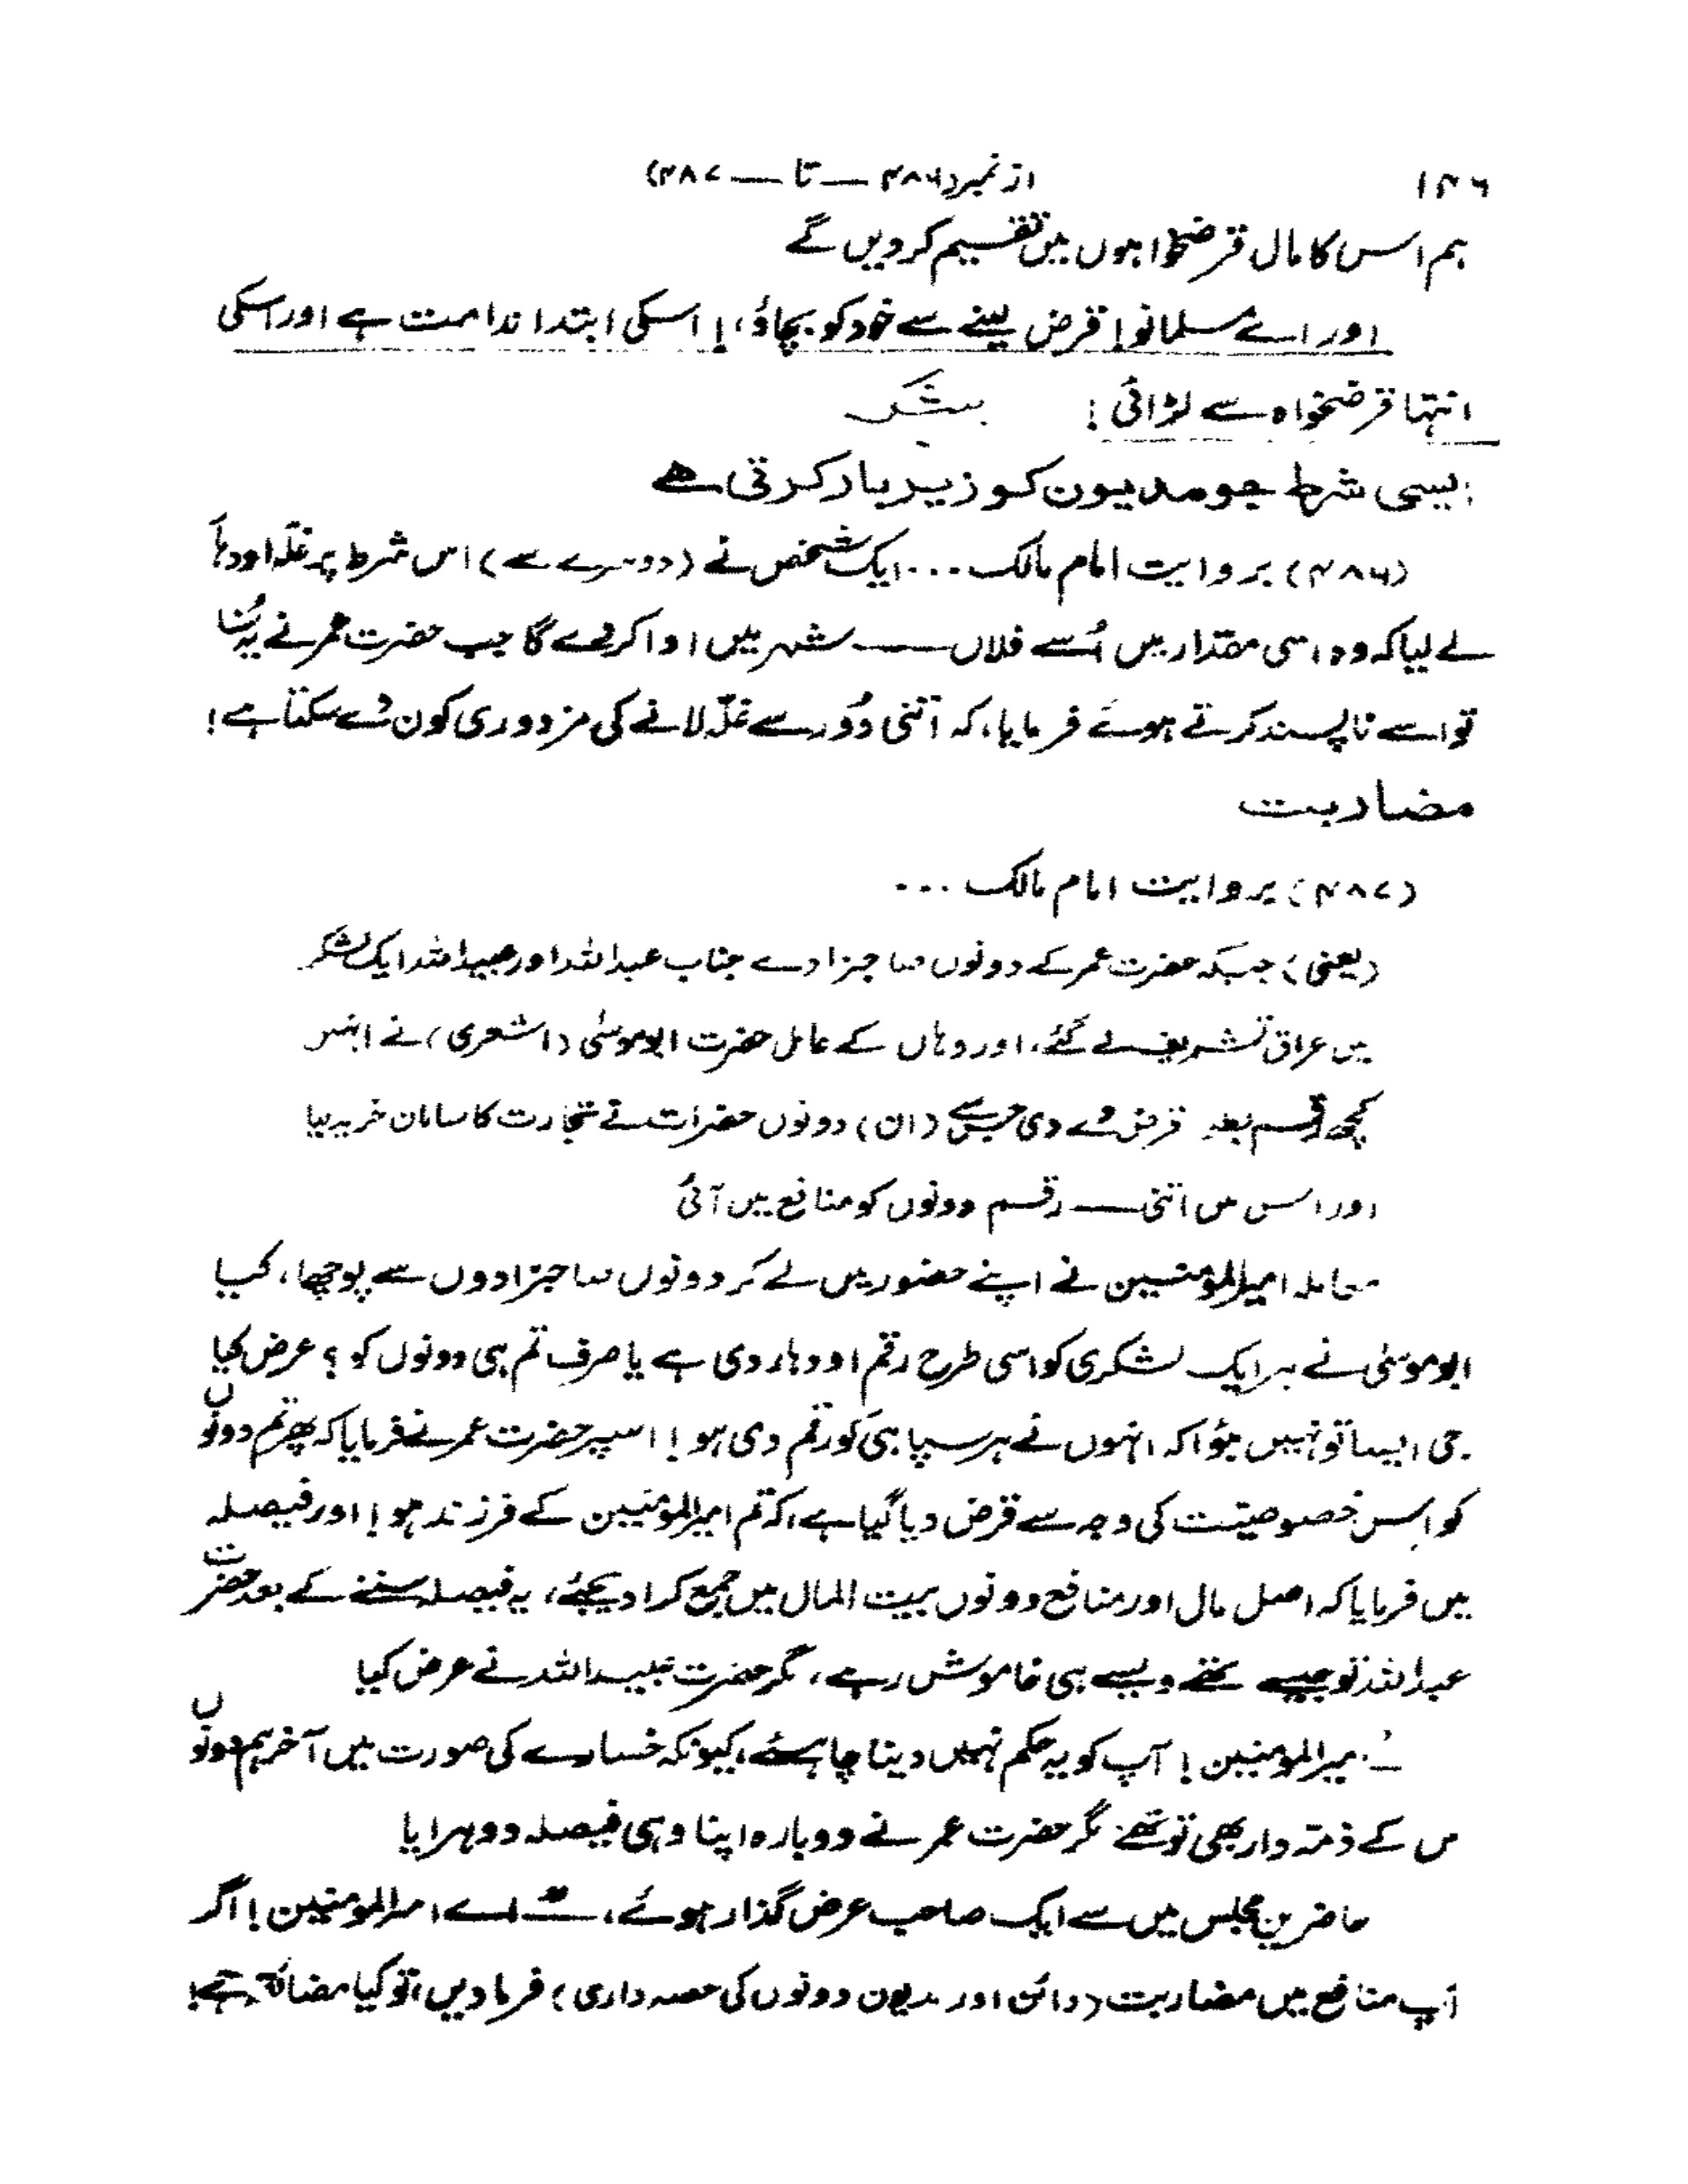 ۱۴۶ از نمبر (۴۸۶ — تا — ۴۸۷)
ہم اس کا مال قرضخواہوں میں تقسیم کردیں گے
اور اے مسلمانو! قرض لینے سے خود کو بچاؤ،! اسکی ابتدا ندامت ہے اور اسکی
انتہا قرضخواہ سے لڑائی!
ایسی شرط جو مدیون کو زیر بار کرتی ہے
(۴۸۶) بروایت امام مالک ... ایک شخص نے (دوسرے سے) اس شرط پر غلہ اودہاً
لے لیا کہ وہ اسی مقدار میں اُسے فلاں — شہر میں ادا کر دے گا جب حضرت عمر نے یہ سُنا
تو اسے ناپسند کرتے ہوئے فرمایا، کہ اتنی دُور سے غلّہ لانے کی مزدوری کون دے سکتا ہے!
مضاربت
(۴۸۷) بروایت امام مالک ...
(یعنی) جبکہ حضرت عمر کے دونوں صاحبزادے جناب عبداللہ اور عبیداللہ ایک لشکر
میں عراق تشریف لے گئے، اور وہاں کے عامل حضرت ابوموسیٰ (اشعری) نے انہیں
کچھ رقم بطور قرض دے دی جس سے (ان) دونوں حضرات نے تجارت کا سامان خرید لیا
اور اس میں اتنی — رقم دونوں کو منافع میں آئی
معاملہ امیرالمؤمنین نے اپنے حضور میں لے کر دونوں صاحبزادوں سے پوچھا، کیا
ابوموسیٰ نے ہر ایک لشکری کو اسی طرح رقم اودہار دی ہے یا صرف تم ہی دونوں کو؟ عرض کیا
جی ایسا تو نہیں ہؤا کہ انہوں نے ہر سپاہی کو رقم دی ہو! اسپر حضرت عمر نے فرمایا کہ پھر تم دونوں
کو اس خصوصیّت کی وجہ سے قرض دیا گیا ہے، کہ تم امیرالمؤمنین کے فرزند ہو! اور فیصلہ
میں فرمایا کہ اصل مال اور منافع دونوں بیت المال میں جمع کرا دیجئے، یہ فیصلہ سننے کے بعد حضرت
عبداللہ تو جیسے تھے ویسے ہی خاموش رہے، مگر حضرت عبیداللہ نے عرض کیا
میرالمومنین! آپ کو یہ حکم نہیں دینا چاہئے، کیونکہ خسارے کی صورت میں آخر ہم دونوں
س کے ذمّہ دار بھی تو تھے مگر حضرت عمر نے دوبارہ اپنا وہی فیصلہ دوہرایا
حاضرین مجلس میں سے ایک صاحب عرض گذار ہوئے، اے امیرالمومنین! اگر
آپ منافع میں مضاربت (دائن اور مدیون دونوں کی حصہ داری) فرما دیں، تو کیا مضائقہ ہے!